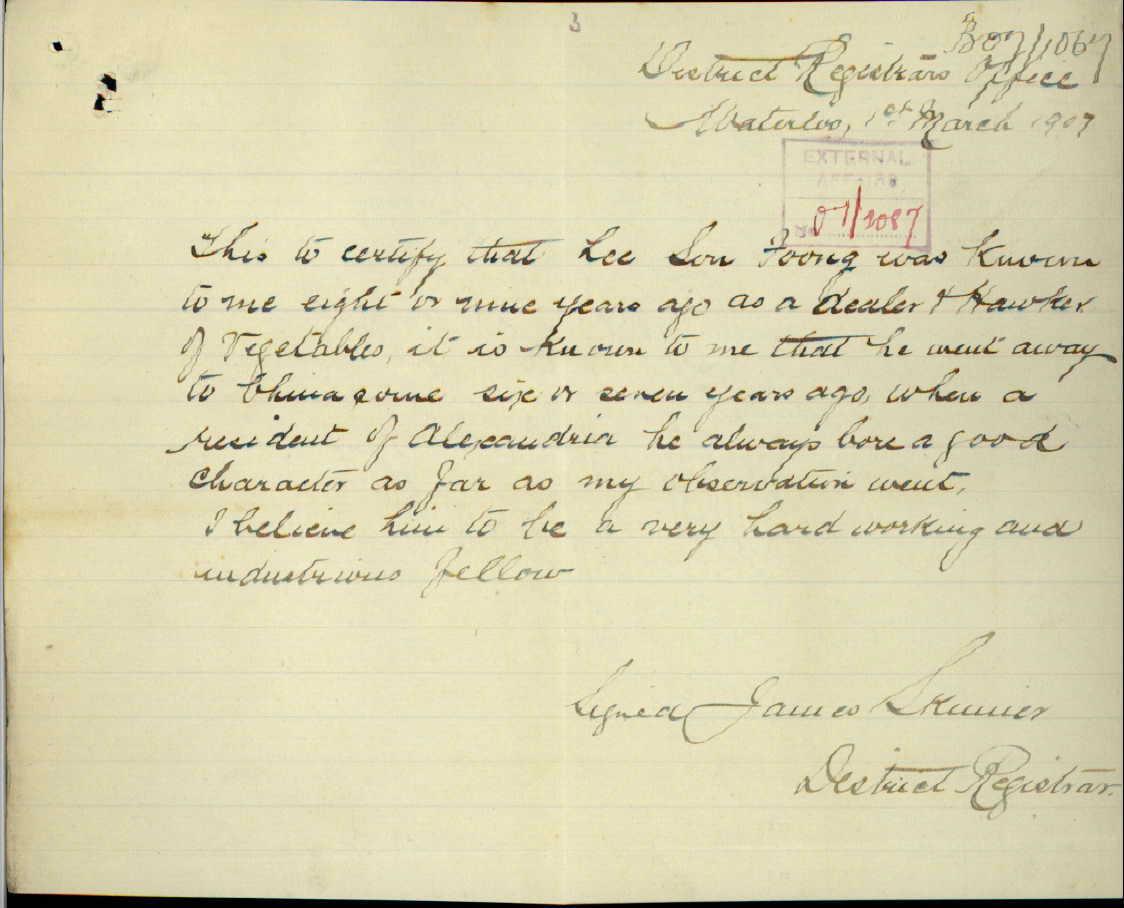 3
B07/1067
District Registrars Office
Waterloo, 1st March 1907
EXTERNAL
AFFAIRS
No 07/2087
This to certify that Lee Son Foong was Known
to me eight or nine years ago as a dealer & Hawker
of Vegetables, it is Known to me that he went away
to China some six or seven years ago, when a
resident of Alexandria he always bore a good
character as far as my observation went,
I believe him to be a very hard working and
industrious fellow
Signed James Skinner
District Registrar.